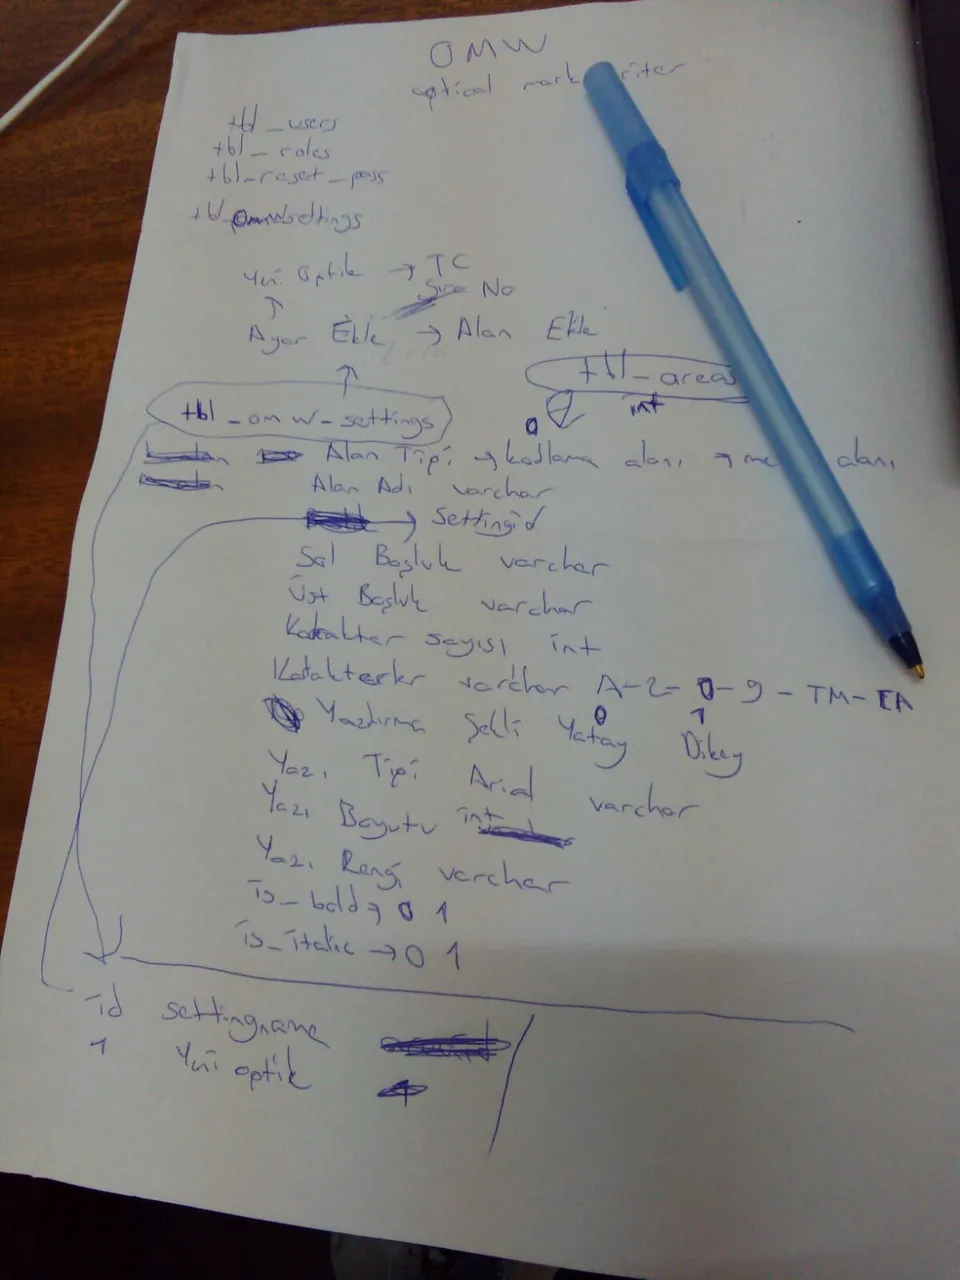 OMW
optical mark
tbl_users
tbl_roles
tbl_reset_pass
settings
Yeni Optik → TC
Sıra No
Ayar Ekle → Alan Ekle
tbl_areas
tbl_omw_settings
int
0
Alan Tipi → kodlama alanı → alanı
Alan Adı varchar
→ Settingid
Sol Boşluk varchar
Üst Boşluk varchar
Karakter sayısı int
Karakterler varchar A-Z- 0-9 - TM-EA
Yazdırma Şekli Yatay Dikey
0 1
Yazı Tipi Arial varchar
Yazı Boyutu int
Yazı Rengi varchar
is_bold → 0 1
is_italic → 0 1
id settingname
1 Yeni optik